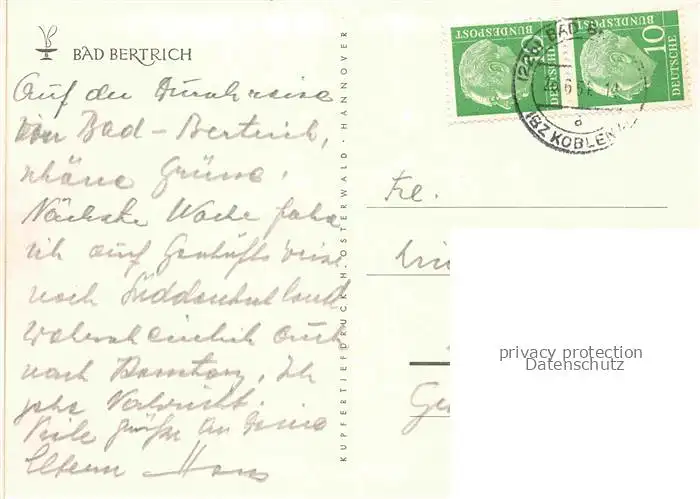 BAD BERTRICH
Auf der Durchreise
von Bad-Bertrich,
schöne Grüsse.
Nächste Woche fahre
ich auf Geschäftsreise
nach Süddeutschland
wahrscheinlich auch
nach Ich
gebe Nachricht.
Viele Grüße an Deine
Eltern Hans
KUPFERTIEFDRUCK H. OSTERWALD · HANNOVER
DEUTSCHE BUNDESPOST 10
DEUTSCHE BUNDESPOST 10
BAD
(BZ KOBLENZ)
a
Frl.
privacy protection
Datenschutz